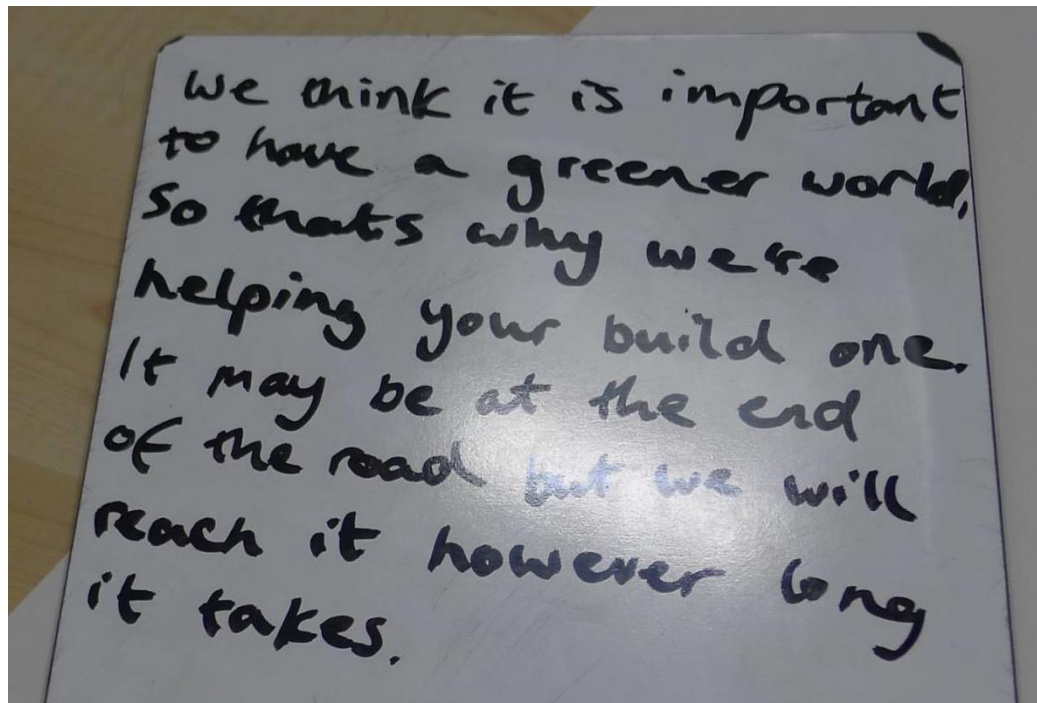 We think it is important
to have a greener world,
So thats why we're
helping your build one.
It may be at the end
of the road but we will
reach it however long
it takes.